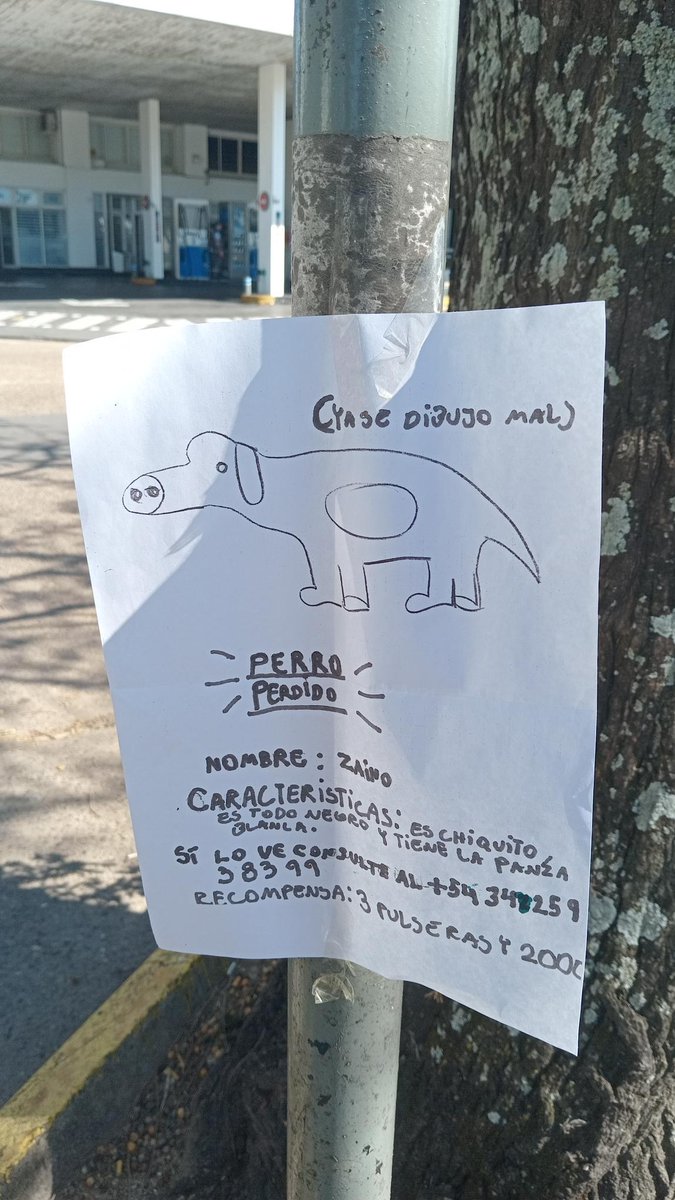 (YA SE DIBUJO MAL)
PERRO
PERDIDO
NOMBRE: ZAINO
CARACTERISTICAS: ES CHIQUITO,
ES TODO NEGRO Y TIENE LA PANZA
BLANCA.
SÍ LO VE CONSULTE AL +54 348259
38399
RECOMPENSA: 3 PULSERAS Y 2000